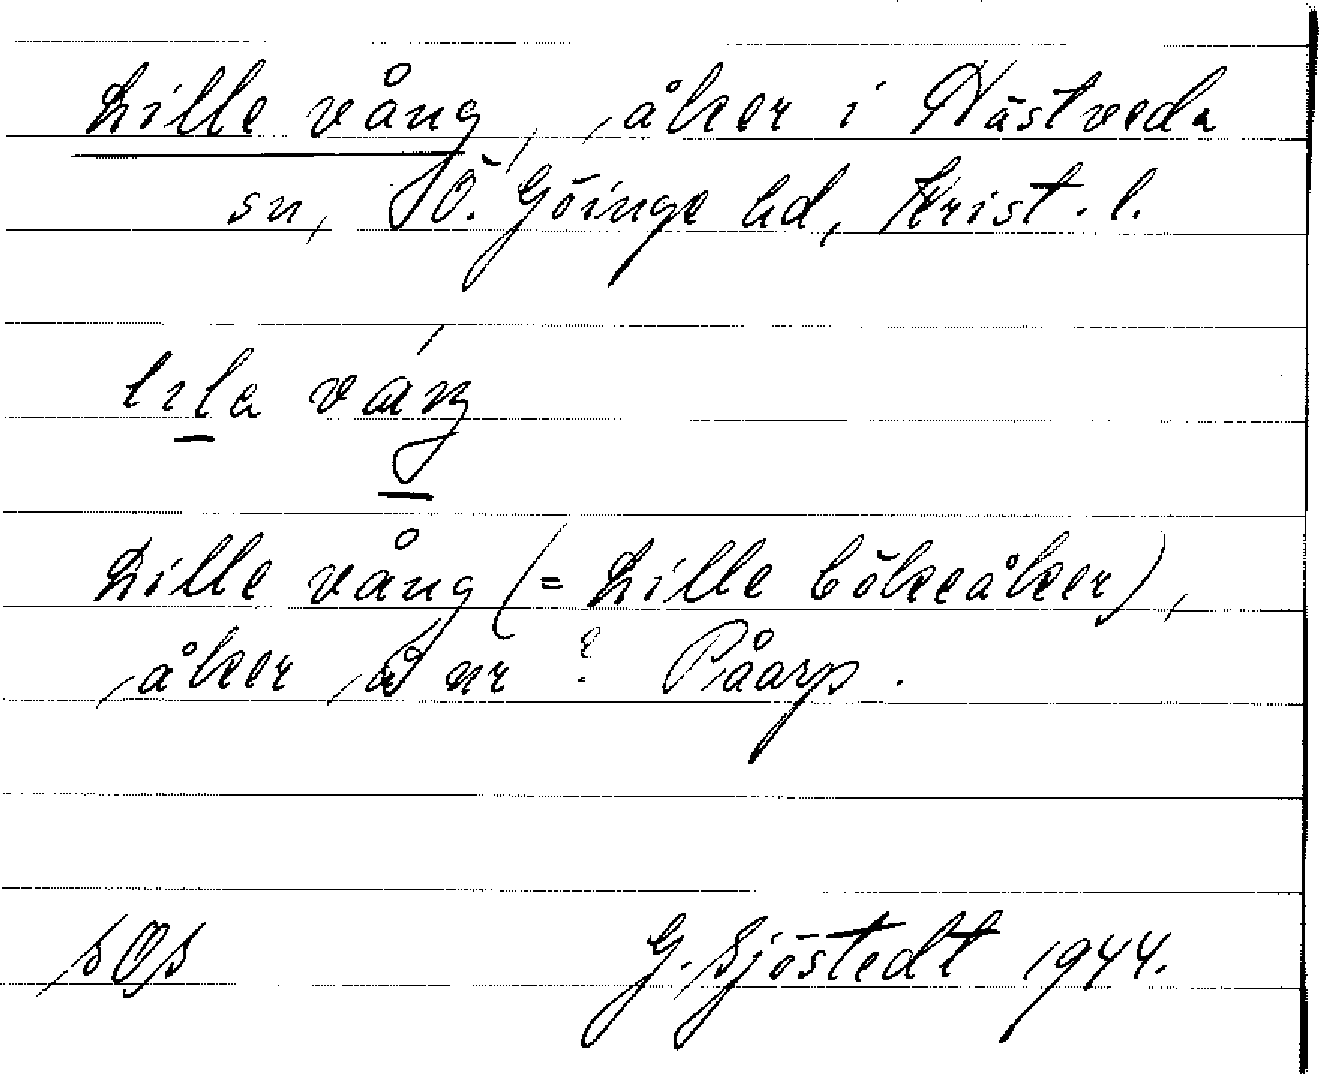 Lille vång, åker i Hästveda
sn, Ö. Göinge hd, Krist. l.
lıla váŋ
Lille vång (= Lille bökeåker),
åker å nr ? Påarp.
SOS G. Sjöstedt 1944.